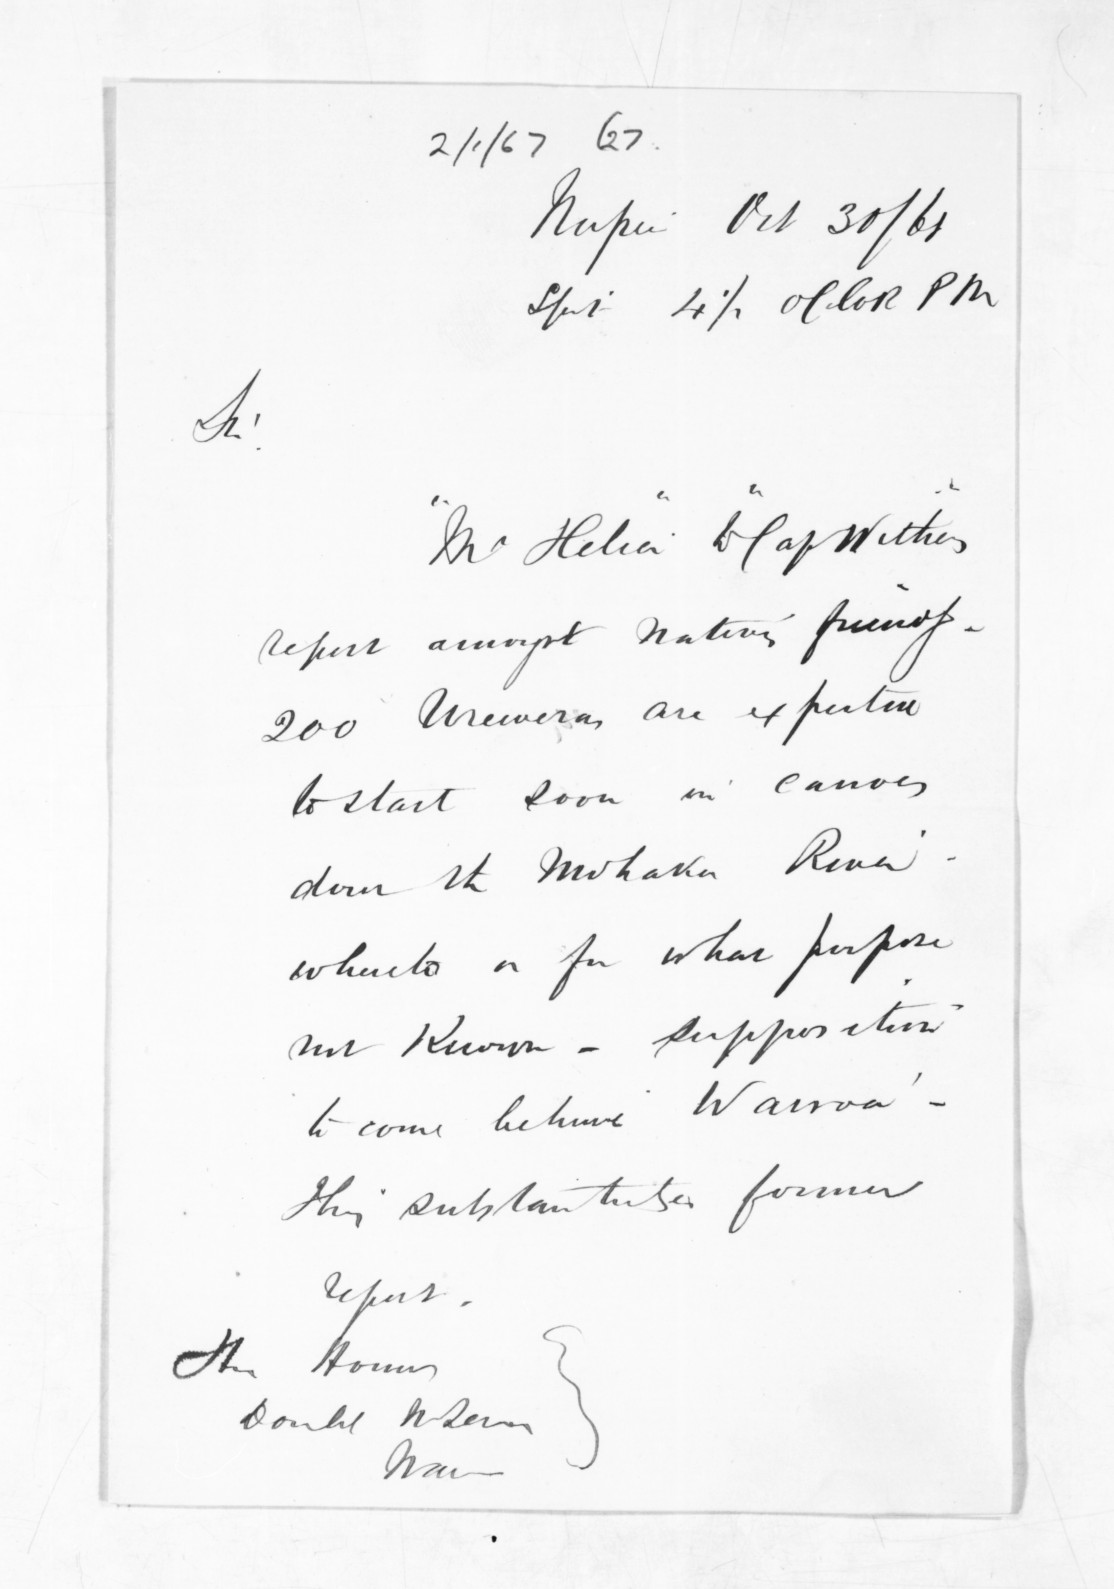 2/1/67 627.
Napier Oct 30/68
4 1/2 oClok PM
Sir!
"Mr Helier" to "Cap Withers"
report amongst natives friendly -
200 Ureweras are expected
to start soon in canoes
down the Mohaka River -
whereto or for what purpose
not Known - supposition
to come behind Wairoa -
This substantiates former
report.
The Honor
Donald McLean